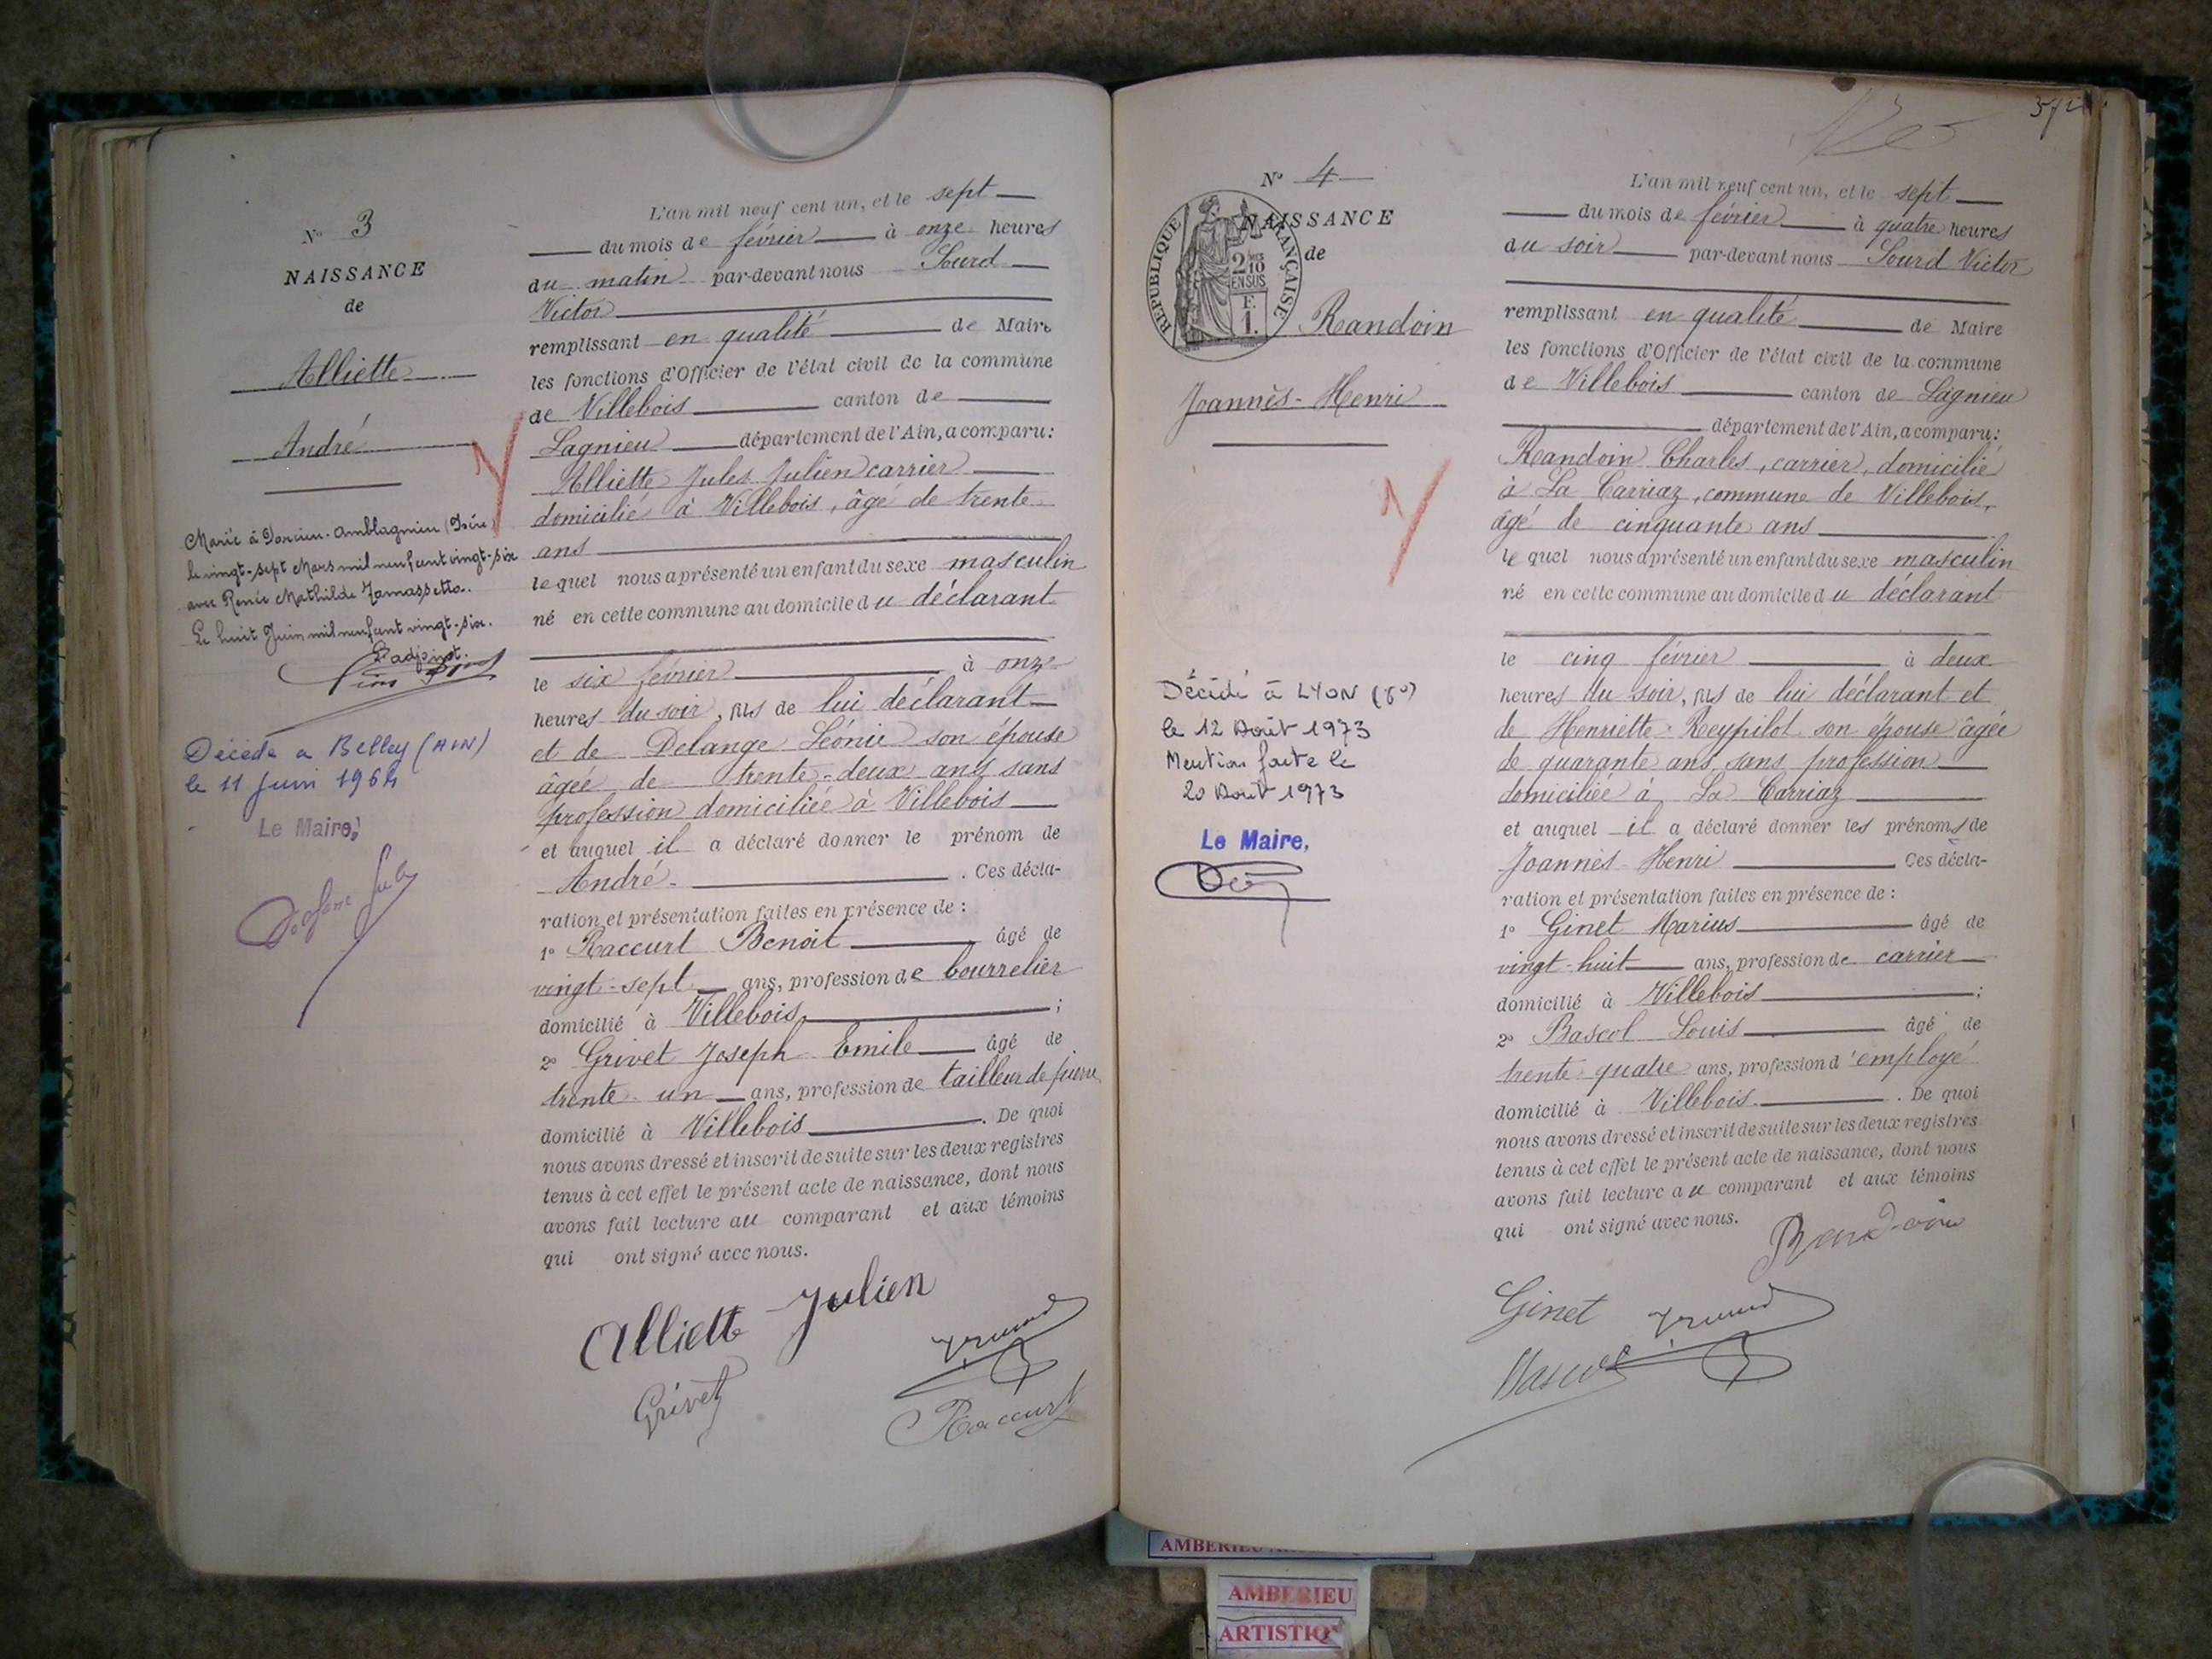 N° 3
NAISSANCE
de
Alliette
André
Marié à Porcieu-Amblagnieu (Isère)
le vingt-sept Mars mil neuf cent vingt-six
avec Renée Mathilde Zamassetto.
Le huit Juin mil neuf cent vingt-six.
L'adjoint.
Décédé à Belley (AIN)
le 11 Juin 1964
Le Maire,
L'an mil neuf cent un, et le sept
du mois de février à onze heures
du matin par-devant nous Sourd
Victor
remplissant en qualité de Maire
les fonctions d'Officier de l'état civil de la commune
de Villebois canton de
Lagnieu département de l'Ain, a comparu:
Alliette Jules Julien carrier
domicilié à Villebois, âgé de trente
ans
lequel nous a présenté un enfant du sexe masculin
né en cette commune au domicile du déclarant
le six février à onze
heures du soir, fils de lui déclarant
et de Delange Léonie son épouse
âgée de trente-deux ans sans
profession domiciliée à Villebois
et auquel il a déclaré donner le prénom de
André. . Ces décla-
ration et présentation faites en présence de :
1° Raccurt Benoit âgé de
vingt-sept ans, profession de bourrelier
domicilié à Villebois ;
2° Grivet Joseph Emile âgé de
trente-un ans, profession de tailleur de pierre
domicilié à Villebois . De quoi
nous avons dressé et inscrit de suite sur les deux registres
tenus à cet effet le présent acte de naissance, dont nous
avons fait lecture au comparant et aux témoins
qui ont signé avec nous.
Alliette Julien
Grivet
Raccurt
N° 4
NAISSANCE
de
RÉPUBLIQUE FRANÇAISE
2/10 EN SUS
F. 1.
Randoin
Joannès-Henri
Décédé à LYON (8°)
le 12 Août 1973
Mention faite le
20 Août 1973
Le Maire,
L'an mil neuf cent un, et le sept
du mois de février à quatre heures
du soir par-devant nous Sourd Victor
remplissant en qualité de Maire
les fonctions d'Officier de l'état civil de la commune
de Villebois canton de Lagnieu
département de l'Ain, a comparu:
Randoin Charles, carrier, domicilié
à La Carriaz, commune de Villebois,
âgé de cinquante ans
lequel nous a présenté un enfant du sexe masculin
né en cette commune au domicile du déclarant
le cinq février à deux
heures du soir, fils de lui déclarant et
de Henriette Reypilot son épouse âgée
de quarante ans sans profession
domiciliée à La Carriaz
et auquel il a déclaré donner les prénoms de
Joannès-Henri Ces décla-
ration et présentation faites en présence de :
1° Ginet Marius âgé de
vingt-huit ans, profession de carrier
domicilié à Villebois ;
2° Bascol Louis âgé de
trente-quatre ans, profession d'employé
domicilié à Villebois. . De quoi
nous avons dressé et inscrit de suite sur les deux registres
tenus à cet effet le présent acte de naissance, dont nous
avons fait lecture au comparant et aux témoins
qui ont signé avec nous.
Randoin
Ginet
Bascol
AMBERIEU
AMBERIEU
ARTISTIQ